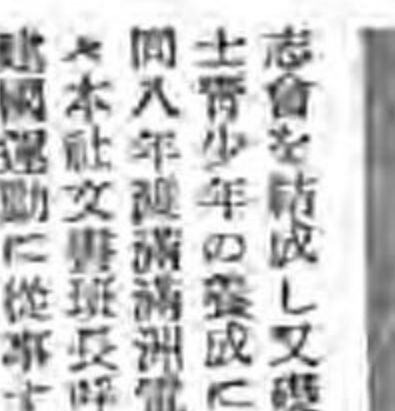 志會を結成し又礎
士青少年の養成に
間八年渡滿滿洲電
々本社文書班長
建國運動に從事す